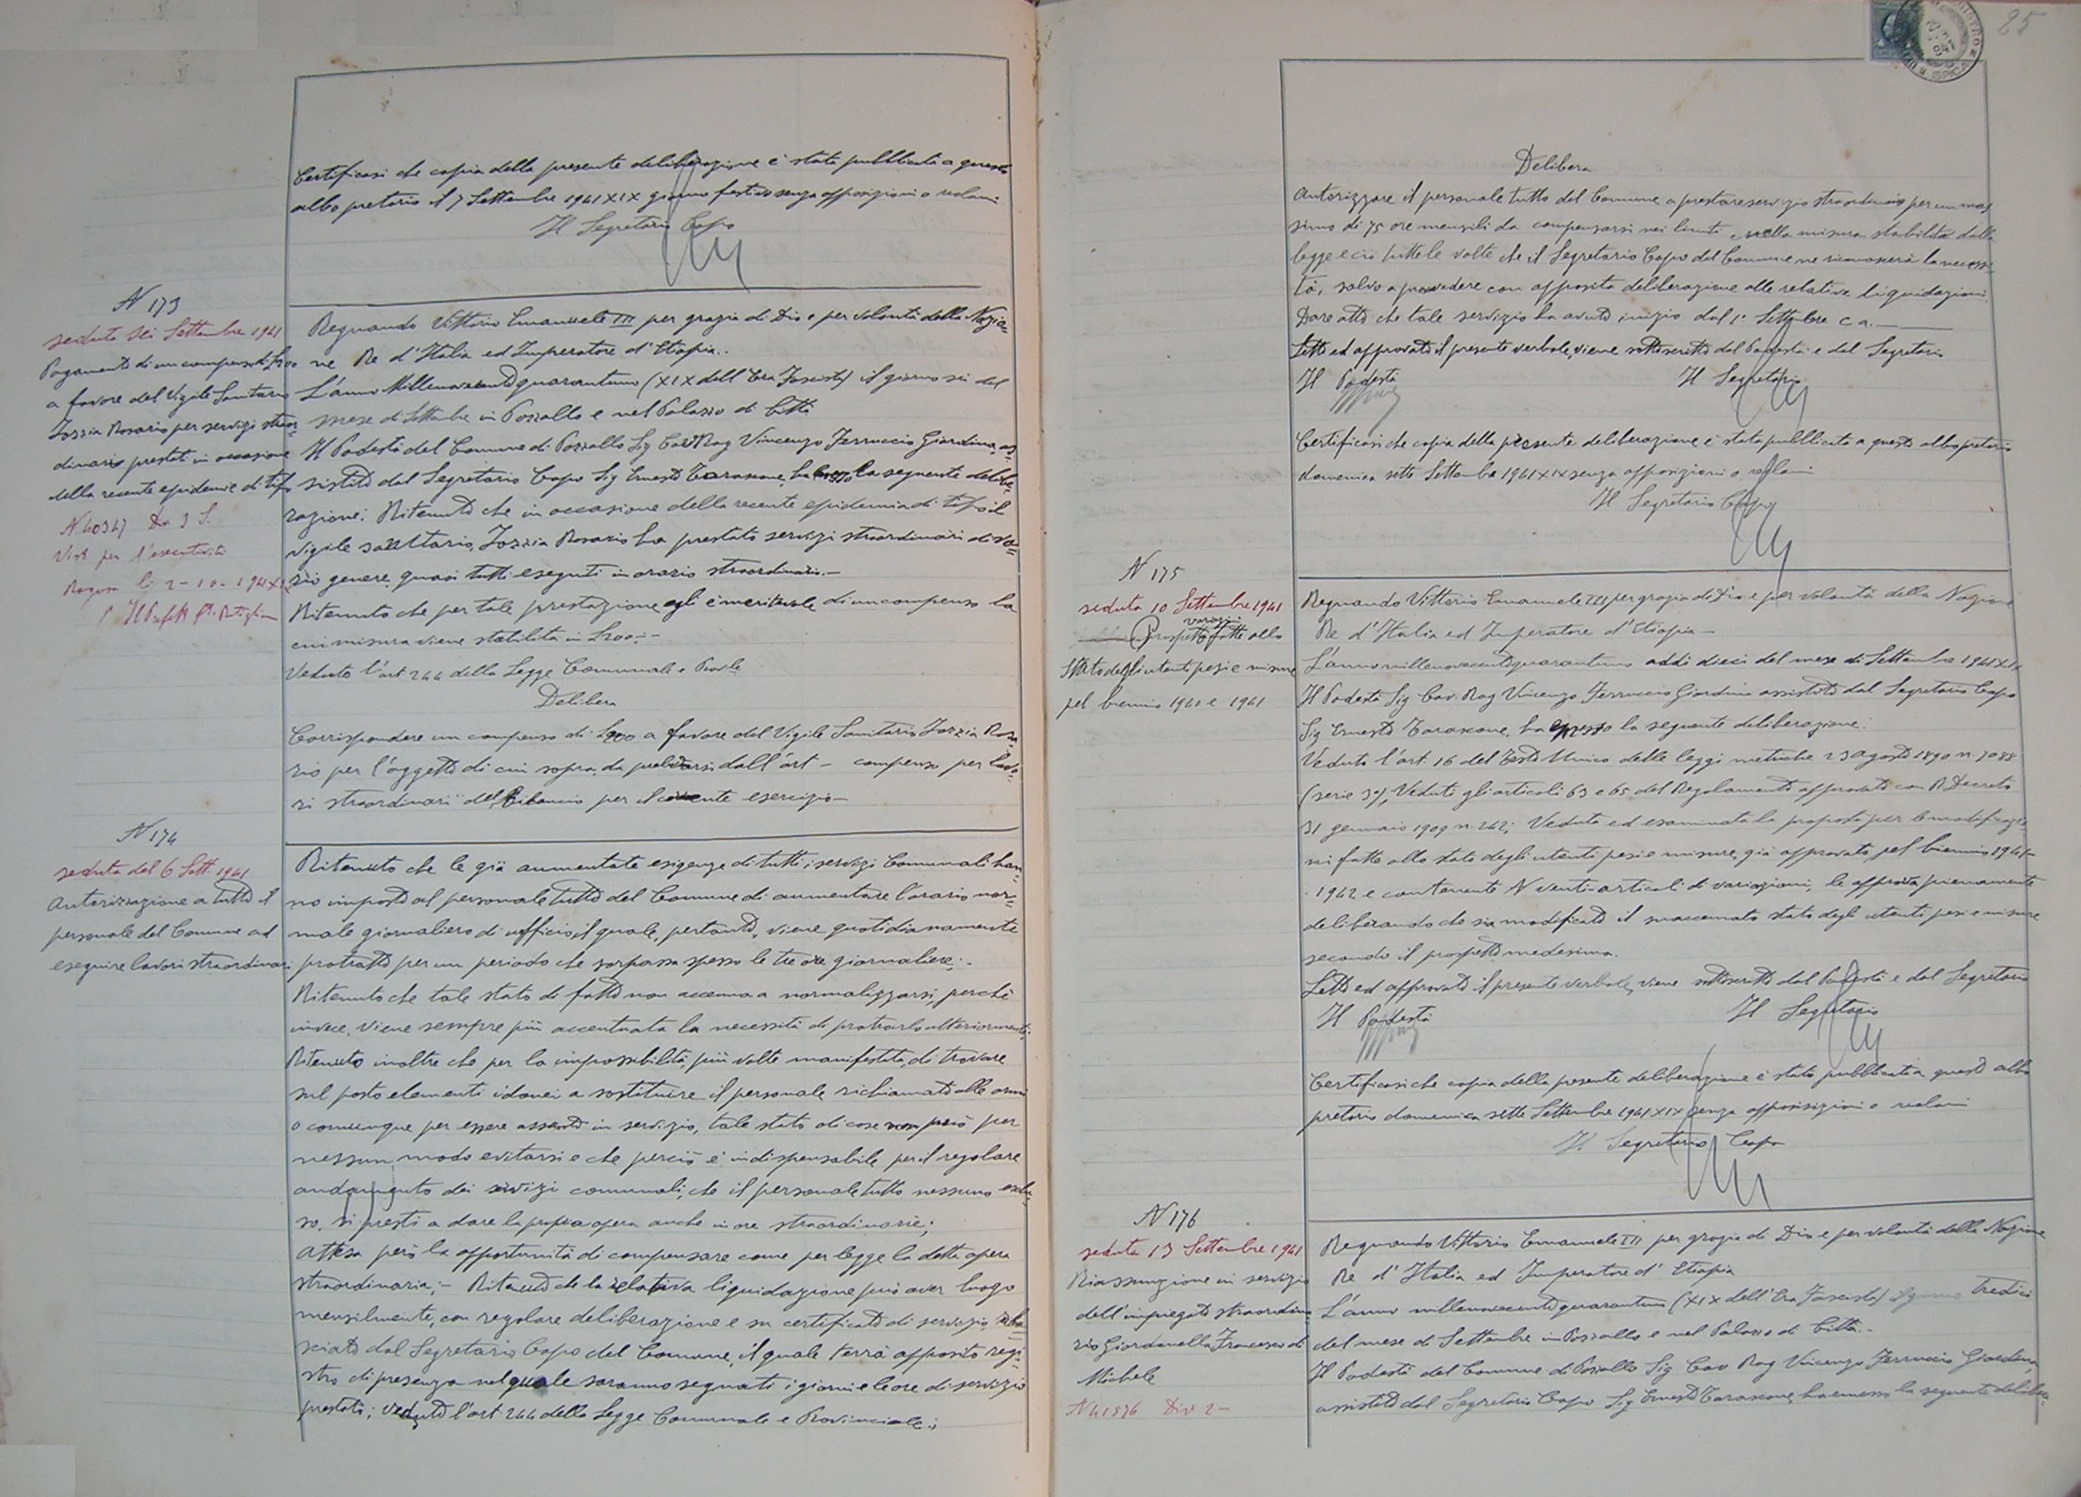 Certificasi che copia della presente deliberazione è stata pubblicata a questo
albo pretorio il 7 Settembre 1941 XIX giorno festivo senza opposizioni o reclami
Il Segretario Capo
N 173
seduta sei Settembre 1941
Pagamento di un compenso di L 200
a favore del Vigile Sanitario
Iozzia Rosario per servizi straor
dinario prestati in occasione
della recente epidemie di tifo
N 40347 Div 3 S.
Visto per l'esecutività
Ragusa li 2-10-1941 XIX
Il Prefetto
Regnando Vittorio Emanuele III per grazia di Dio e per volontà della Nazio=
ne Re d'Italia ed Imperatore d'Etiopia..
L'anno Millenovecentoquarantuno (XIX dell'Era Fascista) il giorno sei del
mese di Settembre in Pozzallo e nel Palazzo di Città
Il Podestà del Comune di Pozzallo Sig Cav Rag Vincenzo Ferruccio Giardina as=
sistito dal Segretario Capo Sig Ernesto Tarascone, ha emesso la seguente delibe=
razione: Ritenuto che in occasione della recente epidemia di tifo il
vigile sanitario, Iozzia Rosario ha prestato servizi straordinari di va=
rio genere, quasi tutti eseguiti in orario straordinario.-
Ritenuto che per tale prestazione egli è meritevole di un compenso la
cui misura viene stabilita in L 200.-
Veduto l'art 244 della Legge Comunale e Prov.le
Delibera
Corrispondere un compenso di L 200 a favore del Vigile Sanitario Iozzia Rosa=
rio per l'oggetto di cui sopra, da prelevarsi dall'art - compenso per lavo=
ri straordinari del bilancio per il corrente esercizio-
N 174
seduta del 6 Sett. 1941
Autorizzazione a tutto il
personale del Comune ad
eseguire lavori straordinari
Ritenuto che le già aumentate esigenze di tutti i servizi Comunali han=
no imposto al personale tutto del Comune di aumentare l'orario nor=
male giornaliero di ufficio il quale, pertanto, viene quotidianamente
protratto per un periodo che sorpassa spesso le tre ore giornaliere;-
Ritenuto che tale stato di fatto non accenna a normalizzarsi, perchè
invece, viene sempre più accentuata la necessità di protrarlo ulteriormente;
Ritenuto inoltre che per la impossibilità, più volte manifestata, di trovare
sul posto elementi idonei a sostituire il personale richiamato alle armi
o comunque per essere assente in servizio, tale stato di cose non può per
nessun modo evitarsi e che perciò è indispensabile per il regolare
andamento dei servizi comunali, che il personale tutto nessuno esclu=
so, si presti a dare la propria opera anche in ore straordinarie;
Attesa però la opportunità di compensare come per legge la detta opera
straordinaria;- Ritenuto che la relativa liquidazione può aver luogo
mensilmente, con regolare deliberazione e su certificato di servizio rila=
sciato dal Segretario Capo del Comune, il quale terrà apposito regi=
stro di presenza nel quale saranno segnati i giorni e le ore di servizio
prestati; veduto l'art 244 della Legge Comunale e Provinciale;
25
Delibera
Autorizzare il personale tutto del Comune a prestare servizio straordinario per un mas
simo di 75 ore mensili da compensarsi nei limiti e nella misura stabilita dalla
legge e ciò tutte le volte che il Segretario Capo del Comune ne riconoscerà la necessi
tà, salvo a provvedere con apposita deliberazione alle relative liquidazioni.
Dare atto che tale servizio ha avuto inizio dal 1° Settembre c a.-
Letto ed approvato il presente verbale, viene sottoscritto dal Podestà e dal Segretario
Il Podestà Il Segretario
Certificasi che copia della presente deliberazione è stata pubblicata a questo albo pretorio
domenica sette Settembre 1941 XIX senza opposizioni o reclami
Il Segretario Capo
N 175
seduta 10 Settembre 1941
Prospetto variaz. fatte allo
Stato degli utenti pesi e misure
pel biennio 1940 e 1941
Regnando Vittorio Emanuele III per grazia di Dio e per volontà della Nazione
Re d'Italia ed Imperatore d'Etiopia-
L'anno millenovecentoquarantuno addì dieci del mese di Settembre 1941 XIX
Il Podestà Sig Cav. Rag Vincenzo Ferruccio Giardina assistito dal Segretario Capo
Sig Ernesto Tarascone, ha emesso la seguente deliberazione:
Veduto l'art. 16 del Testo Unico delle leggi metriche 23 Agosto 1890 n. 7088
(serie 3ª), Veduti gli articoli 63 e 65 del Regolamento approvato con R. Decreto
31 gennaio 1909 n. 242; Veduta ed esaminata la proposta per le modificazio
ni fatte allo stato degli utenti pesi e misure, già approvato pel biennio 1941-
1942 e contenente N venti articoli di variazioni, le approva pienamente
deliberando che sia modificato il suaccennato stato degli utenti pesi e misure
secondo il prospetto medesimo.
Letto ed approvato il presente verbale, viene sottoscritto dal Podestà e dal Segretario
Il Podestà Il Segretario
Certificasi che copia della presente deliberazione è stata pubblicata a questo albo
pretorio domenica sette Settembre 1941 XIX senza opposizioni o reclami
Il Segretario Capo
N 176
seduta 13 Settembre 1941
Riassunzione in servizio
dell'impiegato straordina
rio Giordanella Francesco di
Michele
N 41876 Div 2-
Regnando Vittorio Emanuele III per grazia di Dio e per volontà della Nazione
Re d'Italia ed Imperatore d'Etiopia
L'anno millenovecentoquarantuno (XIX dell'Era Fascista) il giorno tredici
del mese di Settembre in Pozzallo e nel Palazzo di Città.-
Il Podestà del Comune di Pozzallo Sig Cav Rag Vincenzo Ferruccio Giardina
assistito dal Segretario Capo Sig Ernesto Tarascone, ha emesso la seguente delibera=